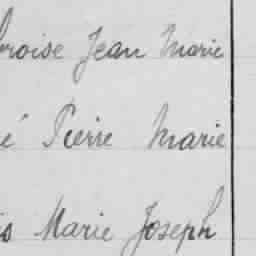 broise Jean Marie
é Pierre Marie
is Marie Joseph